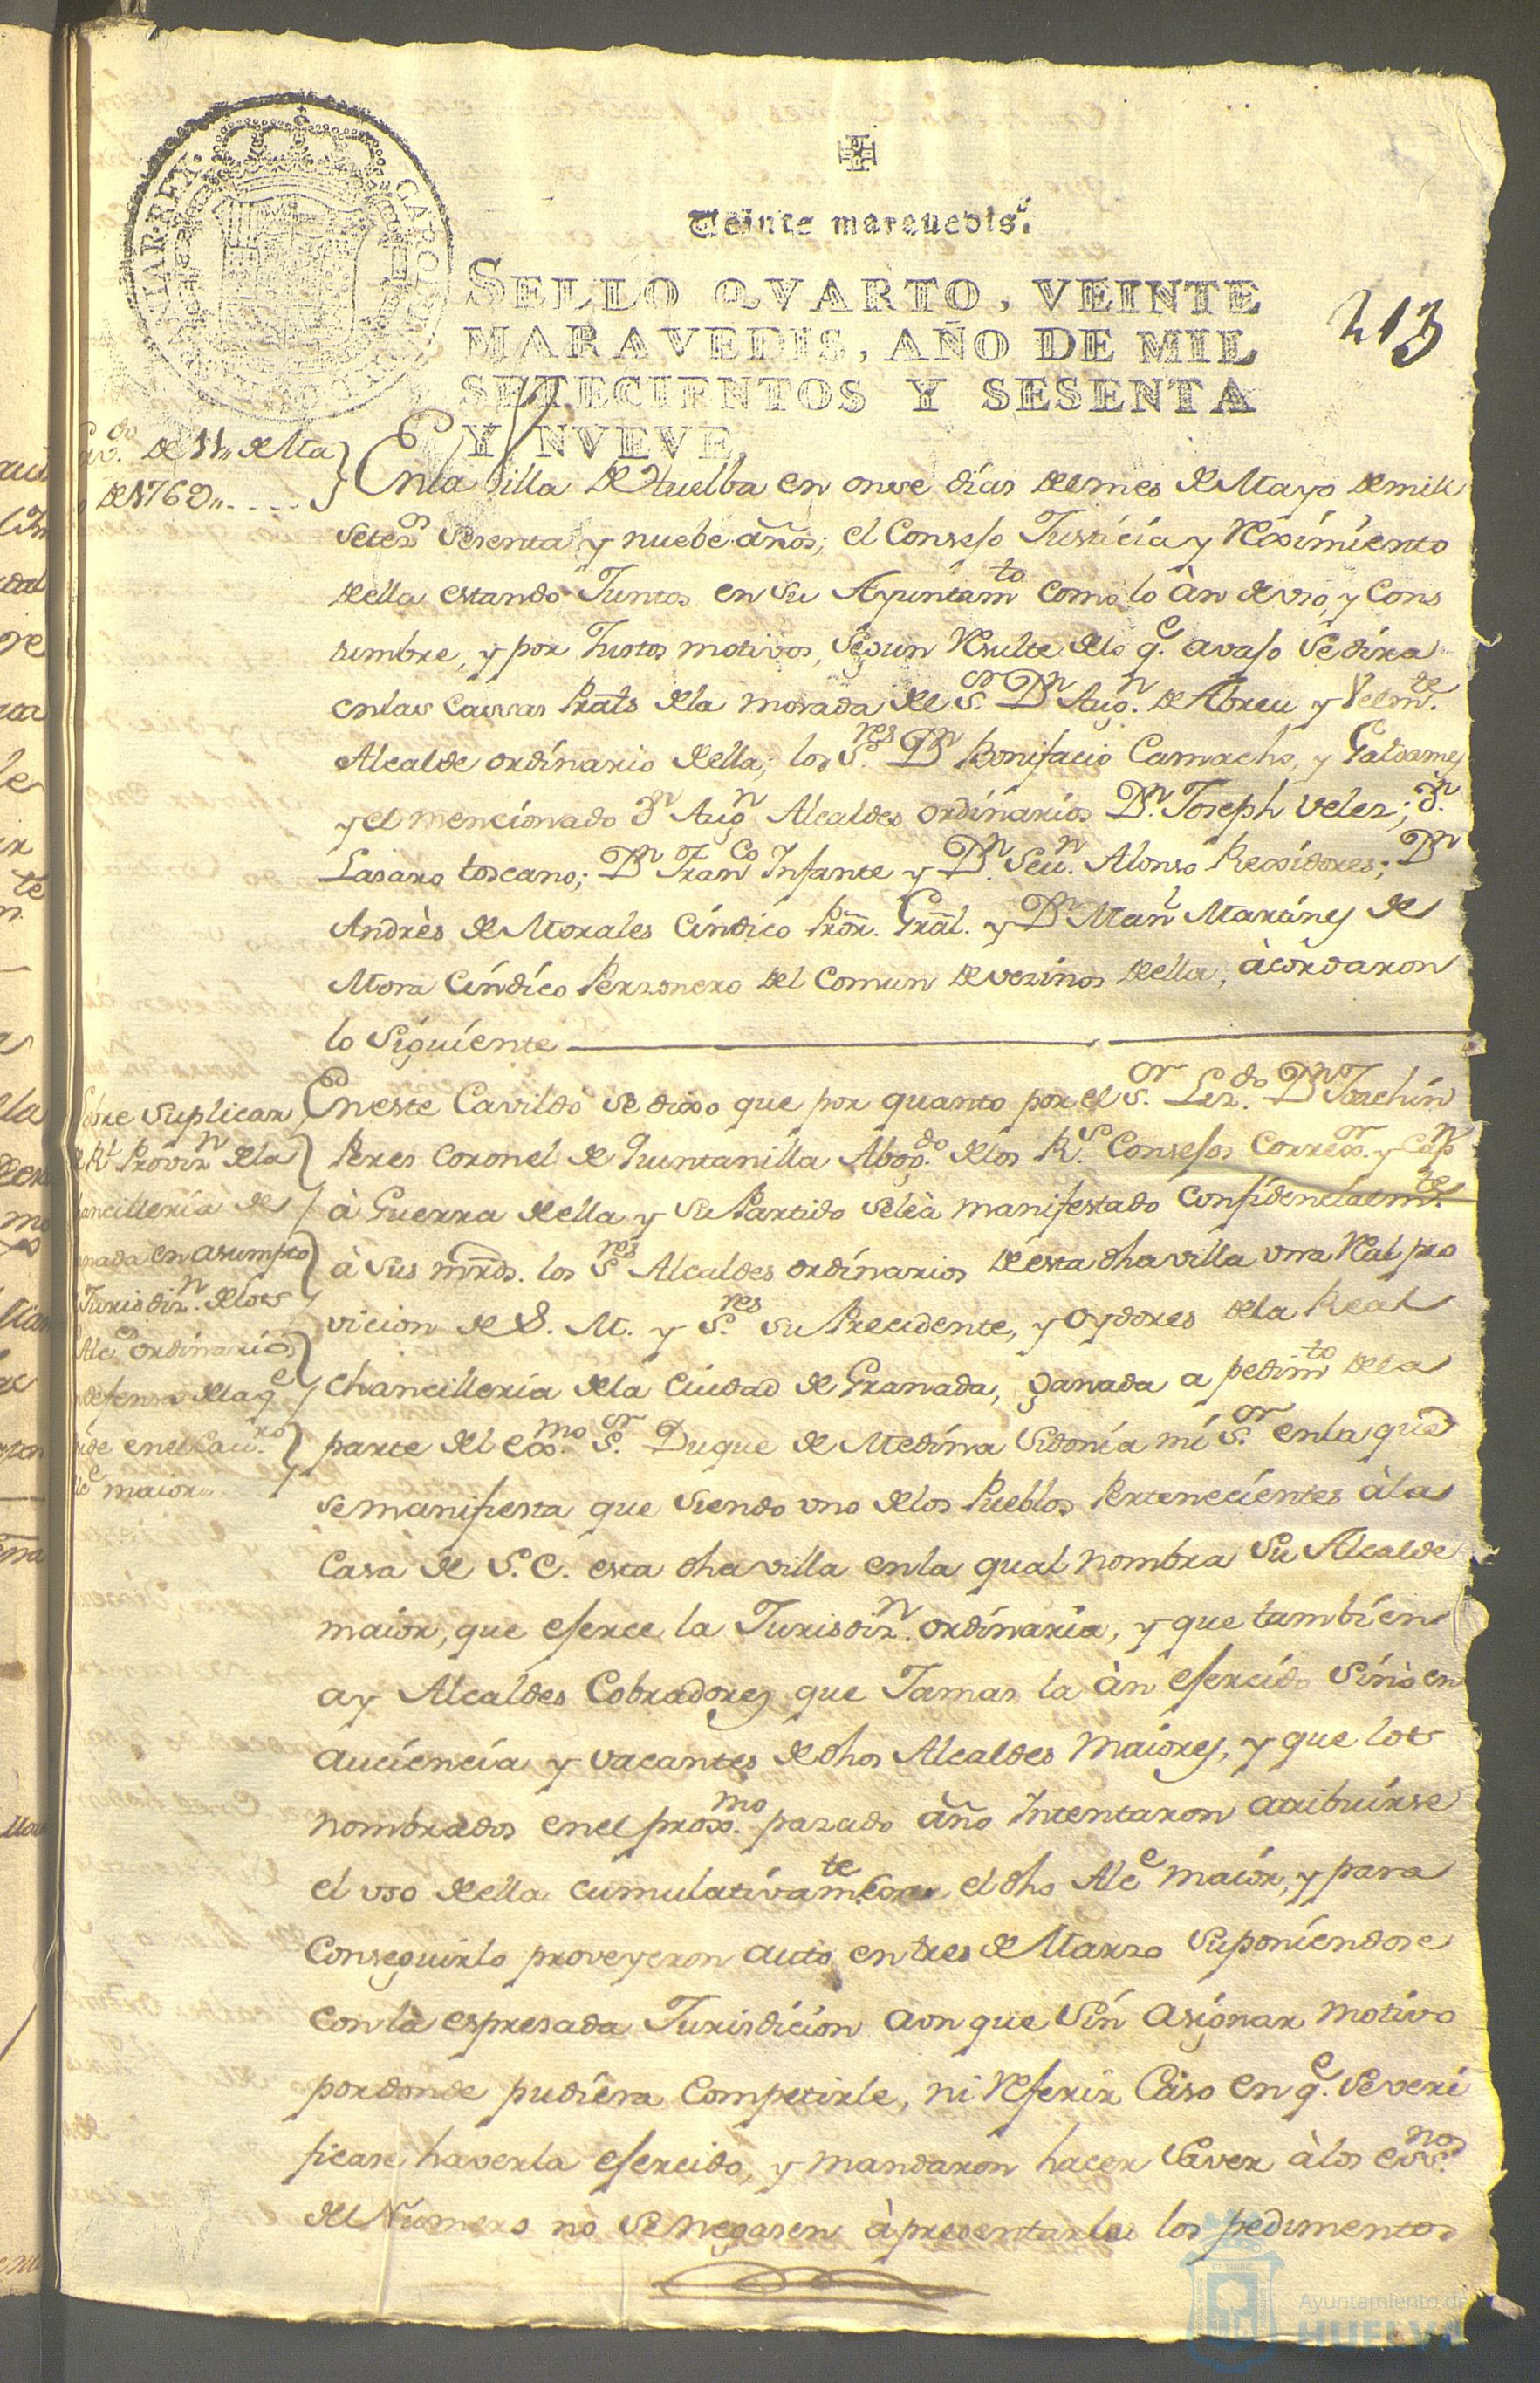 Veinte maravedis.
SELLO QVARTO, VEINTE
MARAVEDIS, AÑO DE MIL
SETECIENTOS Y SESENTA
Y NVEVE.
213
de 11,, de Ma
de 1769,,
En la Villa de Huelba en onse días del mes de Mayo de mill
setezos sesenta y nuebe años; el Consejo Justicia y Reximiento
della estando Juntos en su Ayuntamto como lo àn de uso, y Cons
tumbre, y por Justos motivos, segun Resulte de lo qe avajo se dira
en las Cassas Prals de la morada de el Sor Dn Augn de Abreu y
Alcalde ordínario della; los Sres Dn Bonifacio Camacho, y Galdames
y el mencionado Dn Augn Alcaldes ordinarios Dn Joseph Veles; Dn
Lasaro toscano; Dn Franco Infante y Dn Seun Alonso Rexidores; Dn
Andrès de Morales Cíndico Prõr. Grãl. y Dn Manl Martínes de
Mora Cíndico Personero del Comun de vezinos della, àcordaron
lo Siguiente
Sobre suplicar
Rl Provizn de la
Chancillería de
Granada en asumpto
Jurisdizn de los
Alces ordinarios
defensa de la qe
maior
En este Cavildo se dixo que por quanto por el Sor Lizdo Dn Joachin
Peres Coronel de Quintanilla Abogdo de los Rs Consejos Correxor y Capn
à Guerra della y su Partido se le à manifestado Confidencialmte
à sus mrds. los Sres Alcaldes ordínarios de esta dha villa una Real pro
vicion de S. M. y Sres su Precidente, y oydores de la Real
Chancilleria de la Ciudad de Granada, ganada a pedimto de la
parte del exmo Sor Duque de Medina Sidonia mi Sor en la que
se manifiesta que siendo uno de los Pueblos Pertenecíentes à la
Casa de S. E. esta dha villa en la qual nombra su Alcalde
maior, que eserce la Jurisdizn ordinaria, y que tambien
ay Alcaldes Cobradores que Jamas la àn esercido sino en
auciencia y vacantes de dhos Alcaldes maiores, y que los
nombrados en el proxmo pasado año Intentaron atribuirse
el uso della cumulativamte con el dho Alce maior, y para
Conseguirlo proveyeron auto en tres de Marzo suponiendose
con la espresada Jurisdicion aun que sin asignar motivo
por donde pudiera Competirle, ni Referir Caso en qe se veri
ficase haverla esercido, y mandaron hacer saver à los essnos
del Numero no se negasen à presentarles los pedimentos
Ayuntamiento de
HUELVA